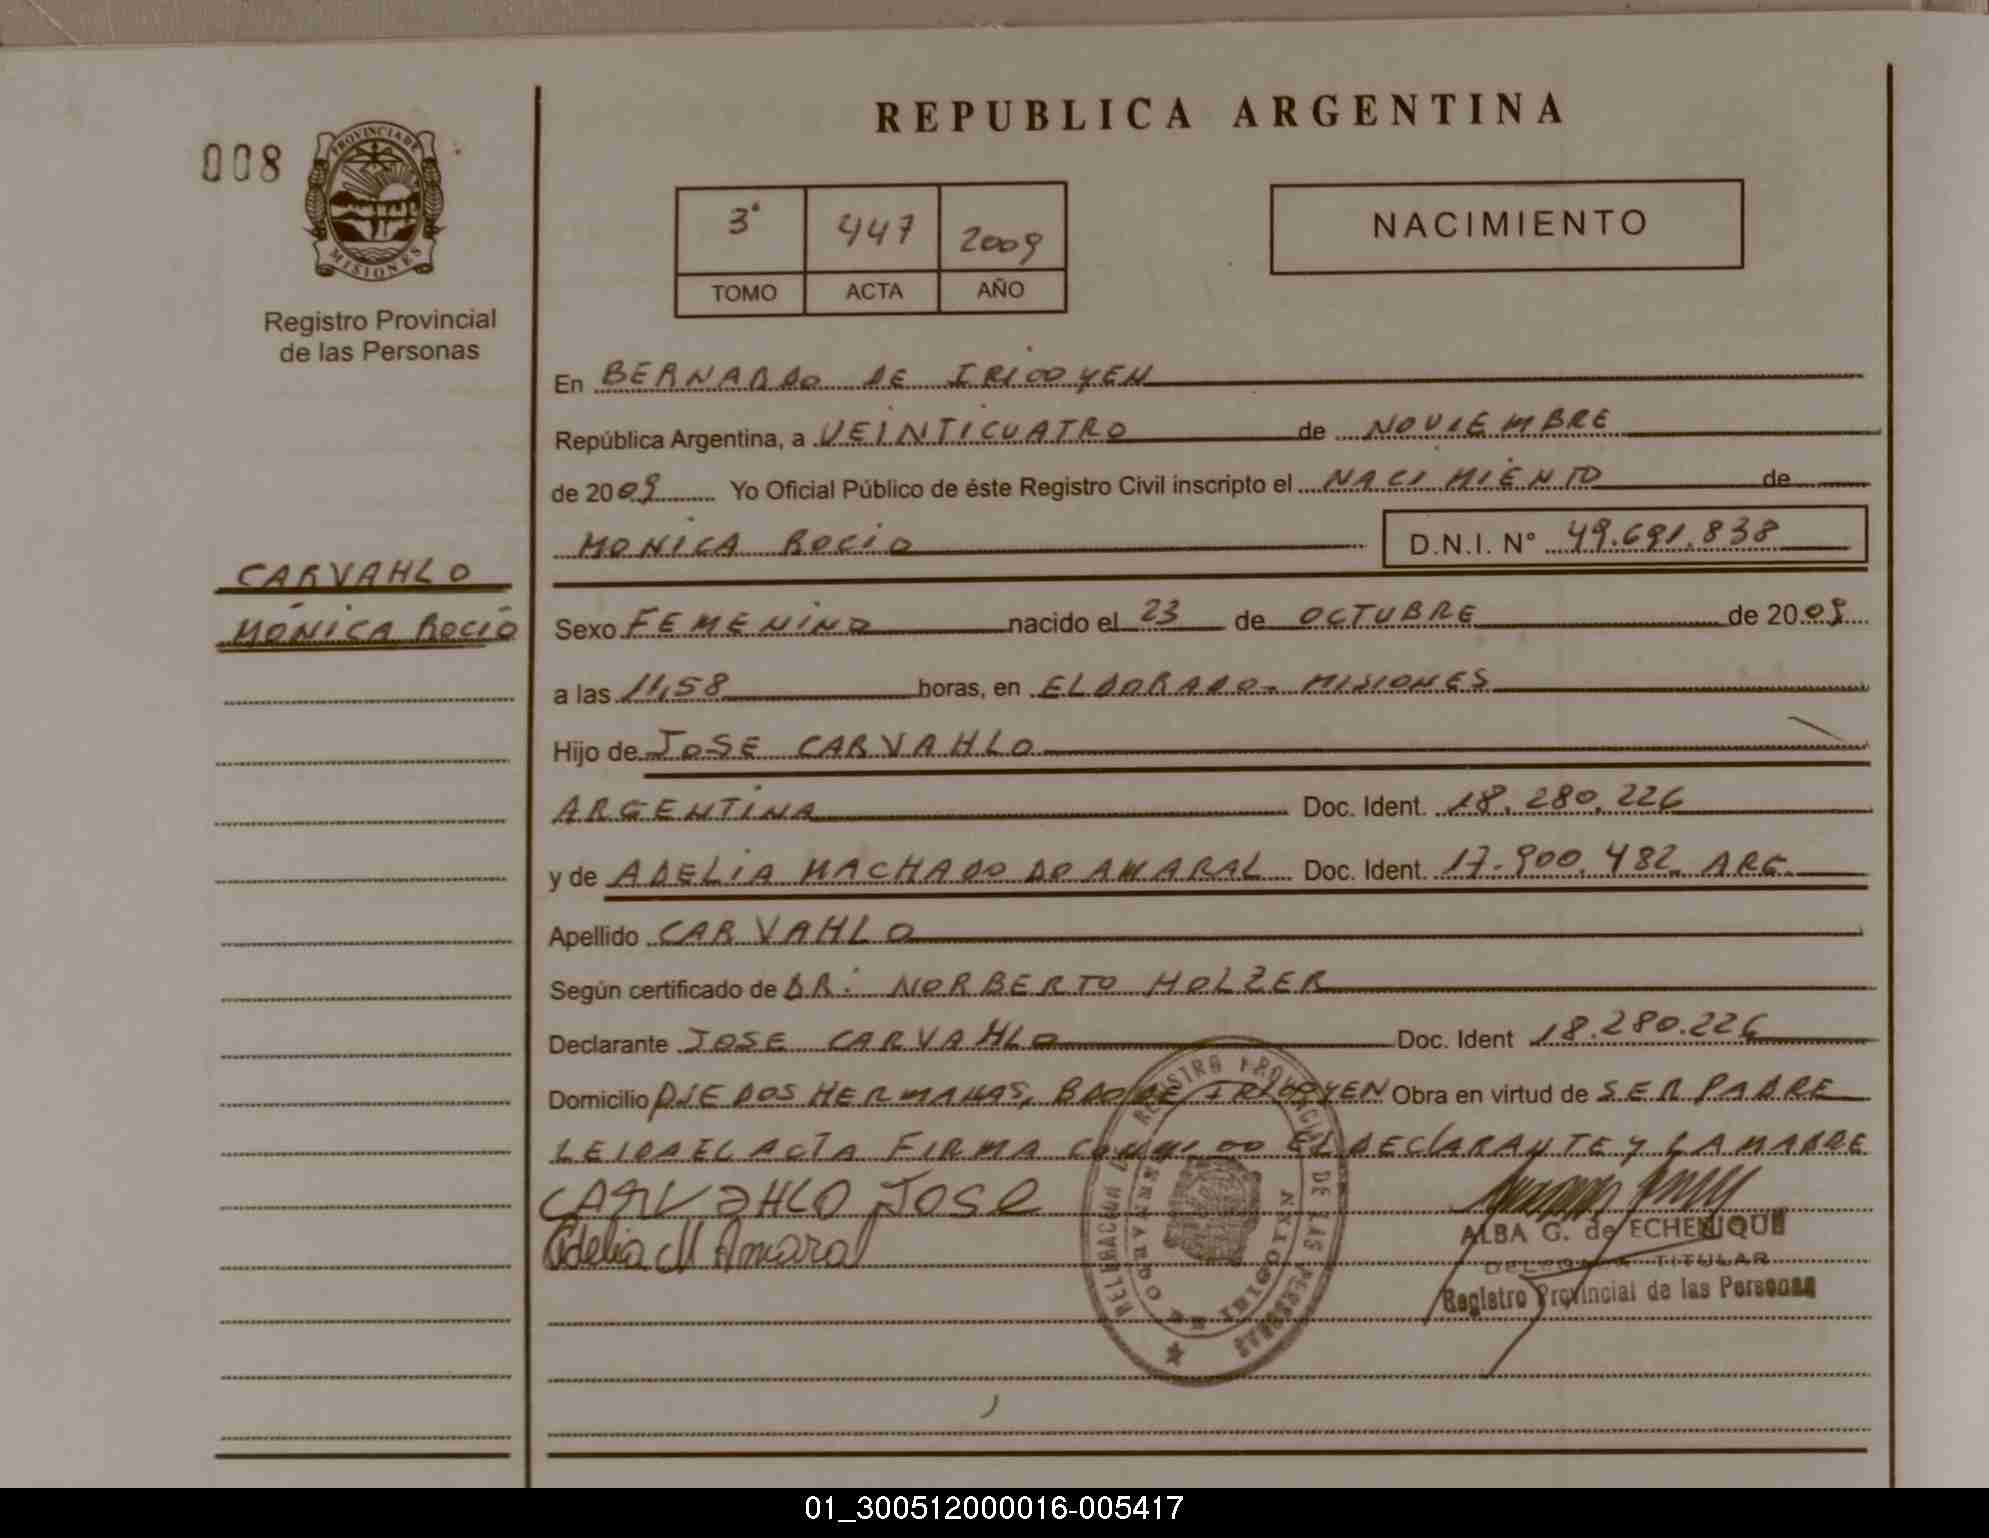 REPUBLICA ARGENTINA
008
PROVINCIA DE
MISIONES
Registro Provincial
de las Personas
3ª 447 2009
TOMO ACTA AÑO
NACIMIENTO
En BERNARDO DE IRIGOYEN
República Argentina, a VEINTICUATRO de NOVIEMBRE
de 2009 Yo Oficial Público de éste Registro Civil inscripto el NACIMIENTO de
MONICA ROCIO D.N.I. N° 49.691.838
CARVAHLO
MÓNICA ROCIÓ
Sexo FEMENINO nacido el 23 de OCTUBRE de 2009
a las 11,58 horas, en ELDORADO - MISIONES
Hijo de JOSE CARVAHLO
ARGENTINA Doc. Ident. 18.280.226
y de ADELIA MACHADO DO AMARAL Doc. Ident. 17.900.482 ARG.
Apellido CARVAHLO
Según certificado de DR: NORBERTO HOLZER
Declarante JOSE CARVAHLO Doc. Ident 18.280.226
Domicilio PJE DOS HERMANAS, BDO DE IRIGOYEN Obra en virtud de SER PADRE
LEIDA EL ACTA FIRMA CONMIGO EL DECLARANTE Y LA MADRE
CARVAHLO JOSE
Adelia M Amaral
REGISTRO PROVINCIAL DE LAS PERSONAS
BERNARDO DE IRIGOYEN
ALBA G. de ECHENIQUE
DELEGADA TITULAR
Registro Provincial de las Personas
01_300512000016-005417